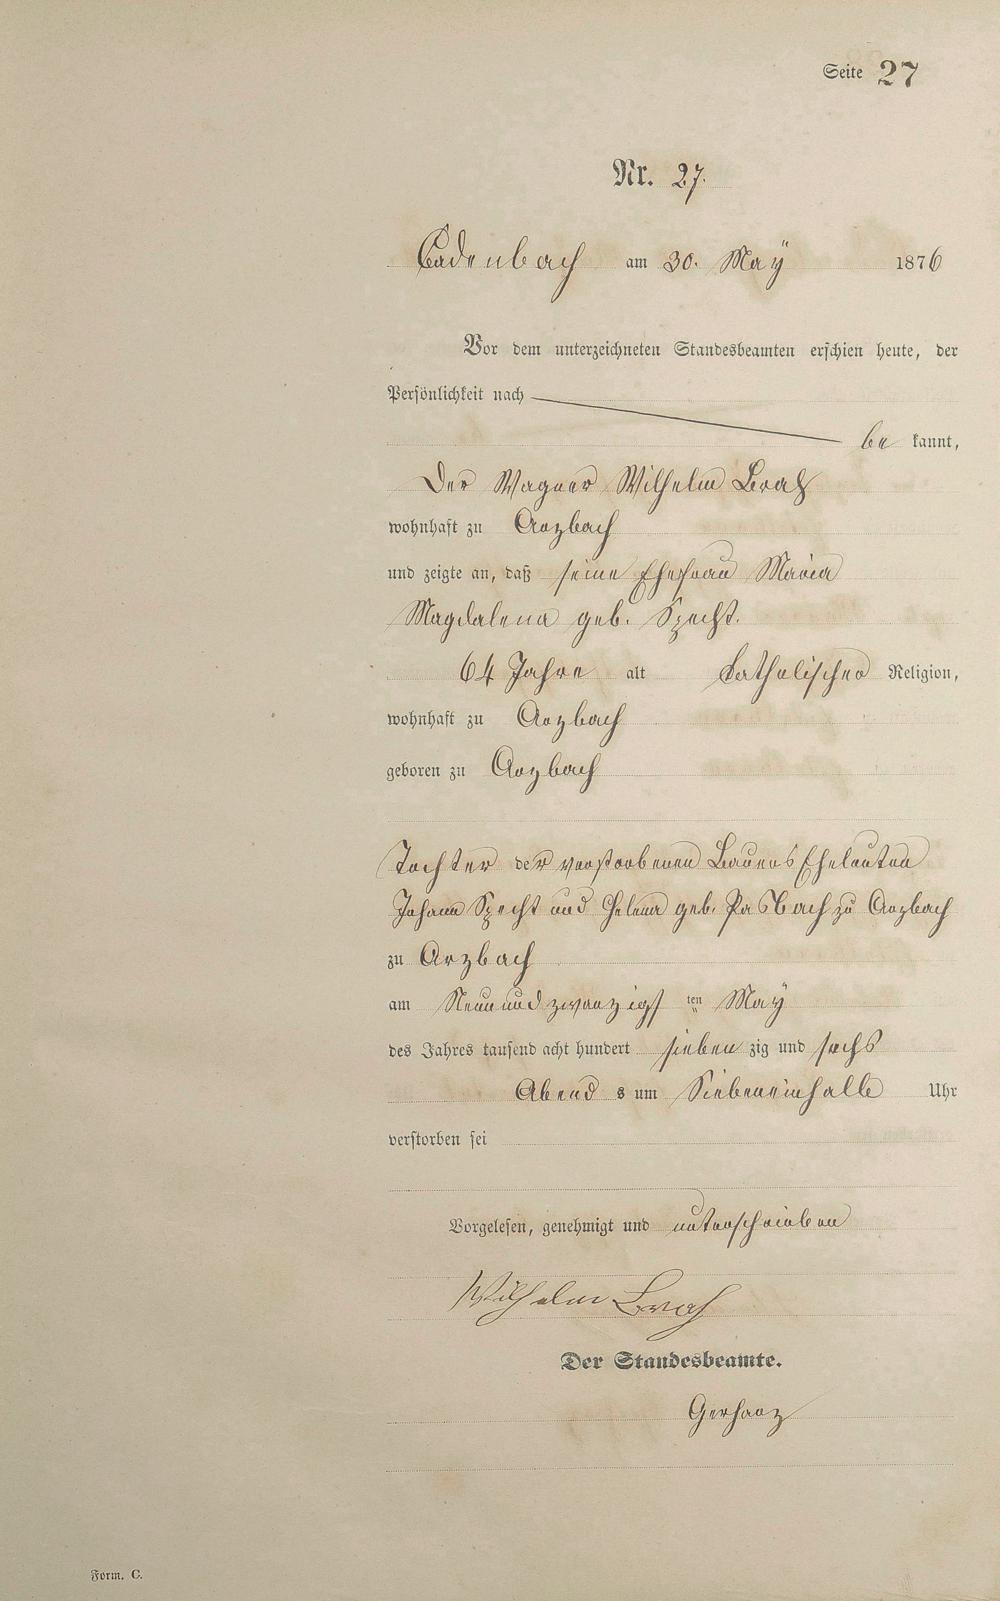 Seite 27
Nr. 27.
Cadenbach am 30. Maÿ 1876
Vor dem unterzeichneten Standesbeamten erschien heute, der
Persönlichkeit nach
be kannt,
Der Wagner Wilhelm
wohnhaft zu Arzbach
und zeigte an, daß seine Ehefrau Maria
Magdalena geb. Specht.
64 Jahre alt katholischer Religion,
wohnhaft zu Arzbach
geboren zu Arzbach
Tochter der verstorbenen Bauers Eheleuten
Johann Specht und Helena geb. zu Arzbach
zu Arzbach
am Neunundzwanzigs ten Maÿ
des Jahres tausend acht hundert sieben zig und sechs
Abend s um Siebeneinhalb Uhr
verstorben sei
Vorgelesen, genehmigt und unterschrieben
Wilhelm
Der Standesbeamte.
Gerharz
Form. C.